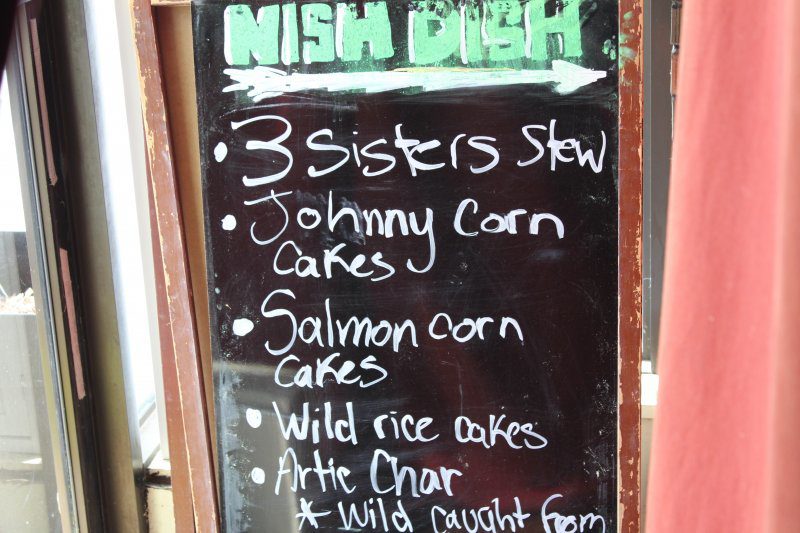 NISH DISH
• 3 Sisters Stew
• Johnny Corn
cakes
• Salmon corn
cakes
• Wild rice cakes
• Artic Char
* Wild caught from